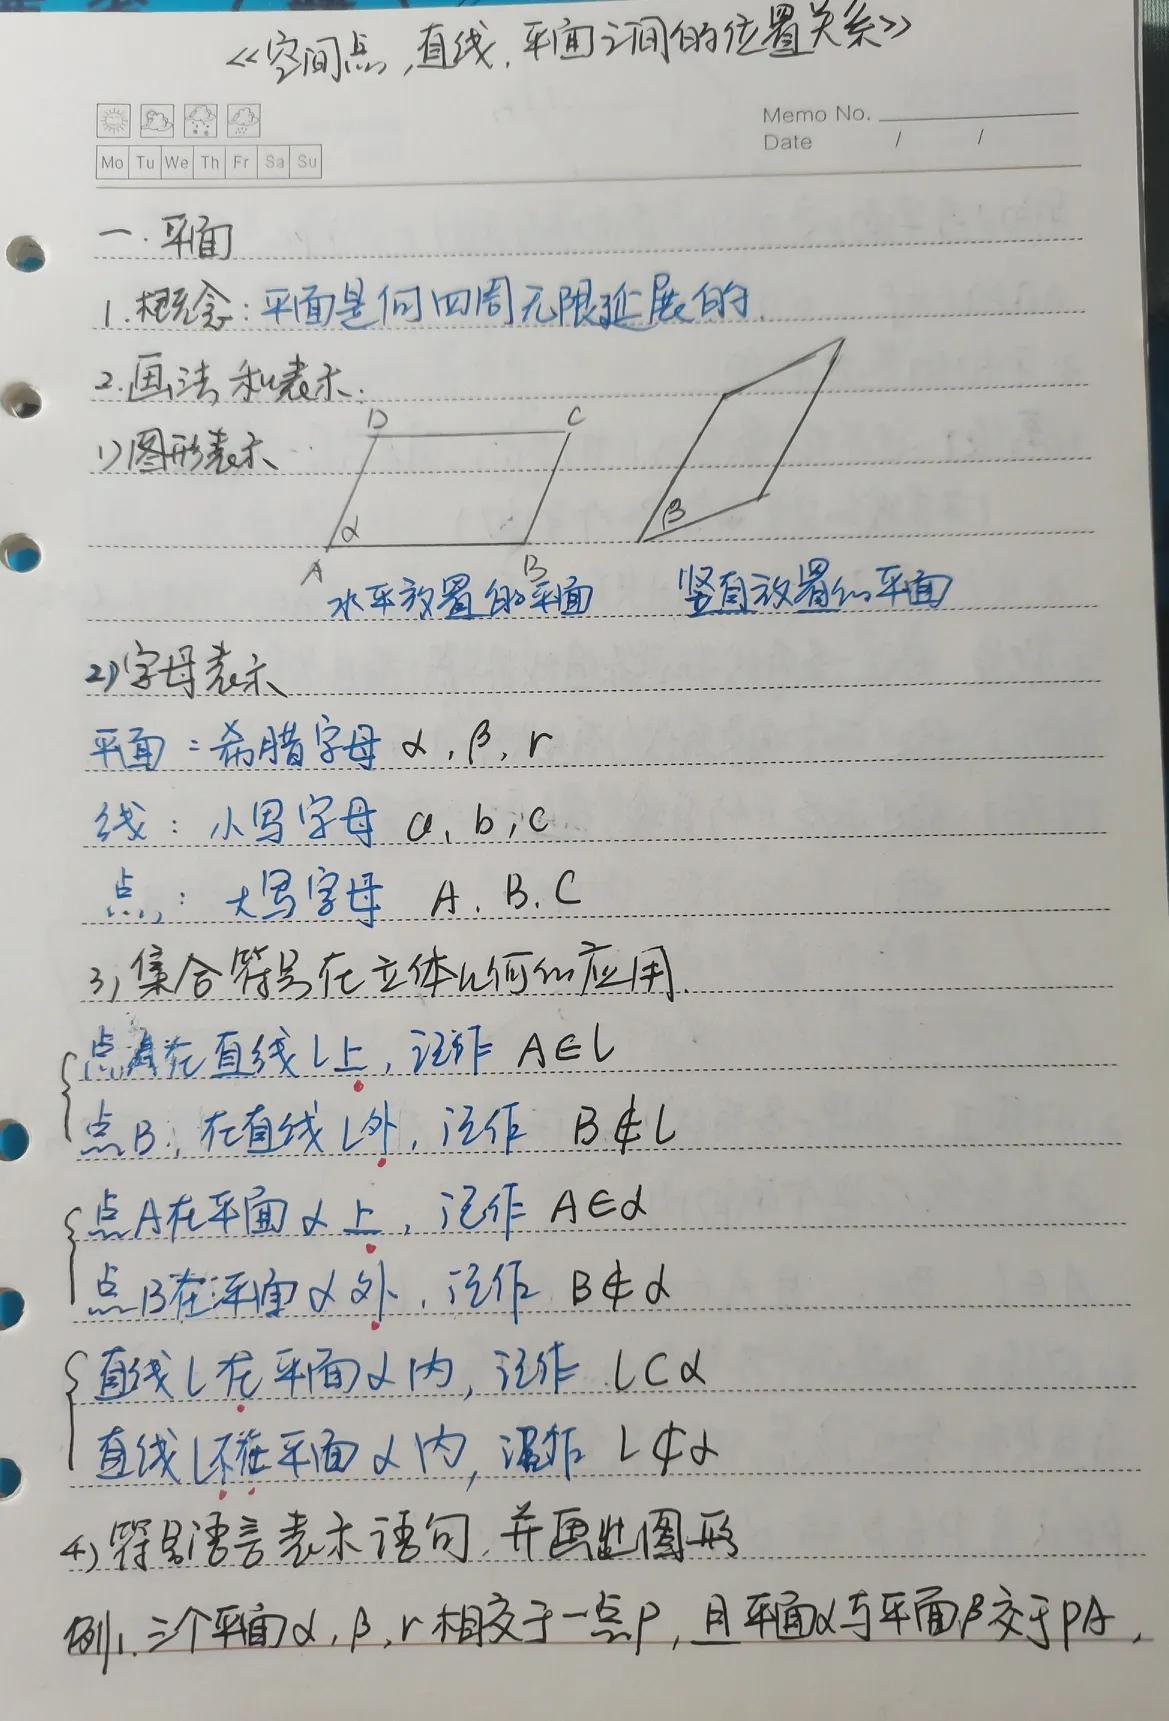 《空间点,直线,平面之间的位置关系》
Memo No.
Date / /
Mo Tu We Th Fr Sa Su
一.平面
1.概念:平面是向四周无限延展的.
2.画法和表示:
1)图形表示
D C
α
β
A B
水平放置的平面 竖直放置的平面
2)字母表示
平面:希腊字母 α,β,r
线:小写字母 a,b,c
点:大写字母 A.B.C
3)集合符号在立体几何的应用.
点A在直线l上,记作 A∈l
点B,在直线l外,记作 B∉l
点A在平面α上,记作 A∈α
点B在平面α外,记作 B∉α
直线l在平面α内,记作 l⊂α
直线l不在平面α内,记作 l⊄α
4)符号语言表示语句,并画出图形
例1.三个平面α,β,r相交于一点P,且平面α与平面β交于PA,